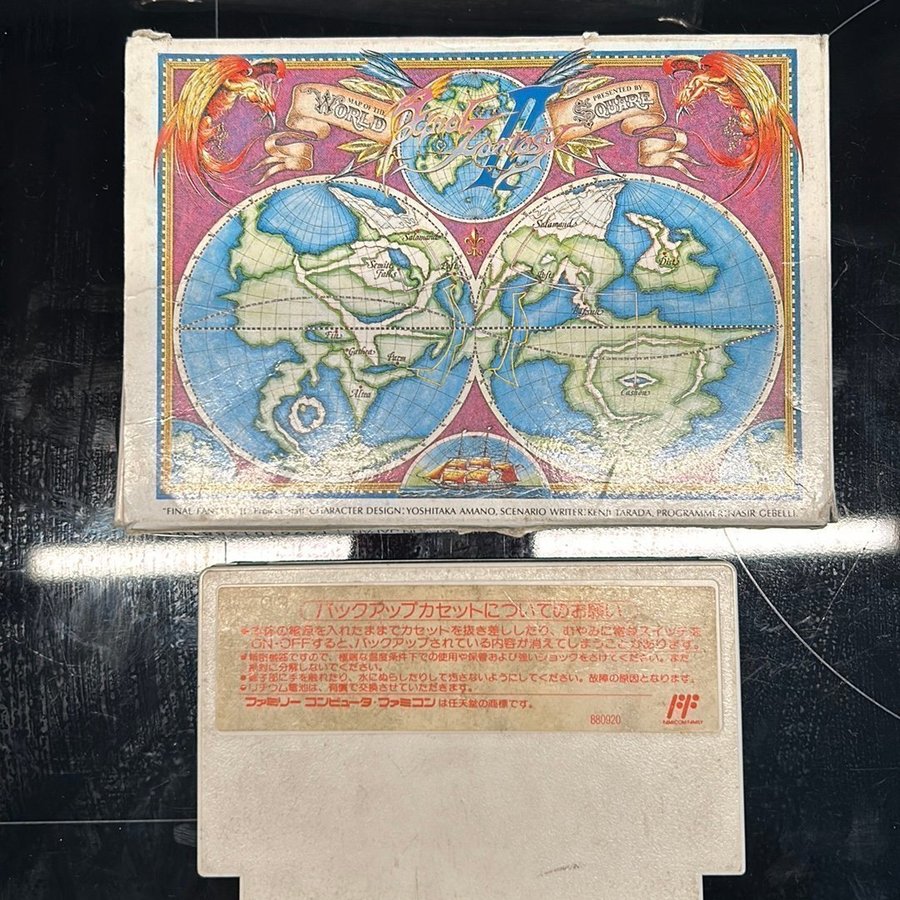 MAP OF THE
WORLD
Final Fantasy II
PRESENTED BY
SQUARE
Salamand
Semitt
Falls
Salamand
Dist
Fin
Gatrea
Parm
Altea
Cashuon
"FINAL FANTASY II" Project Staff CHARACTER DESIGN: YOSHITAKA AMANO, SCENARIO WRITER: KENJI TARADA, PROGRAMMER: NASIR GEBELLI.
バックアップカセットについてのお願い
●本体の電源を入れたままでカセットを抜き差ししたり、むやみに電源スイッチを
ON-OFFすると、バックアップされている内容が消えてしまうことがあります。
●精密機器ですので、極端な温度条件下での使用や保管および強いショックをさけてください。また、
絶対に分解しないでください。
●端子部に手を触れたり、水にぬらしたりして汚さないようにしてください。故障の原因となります。
●リチウム電池は、有償で交換させていただきます。
ファミリー コンピュータ・ファミコンは任天堂の商標です。
880920
FF
FAMICOM FAMILY